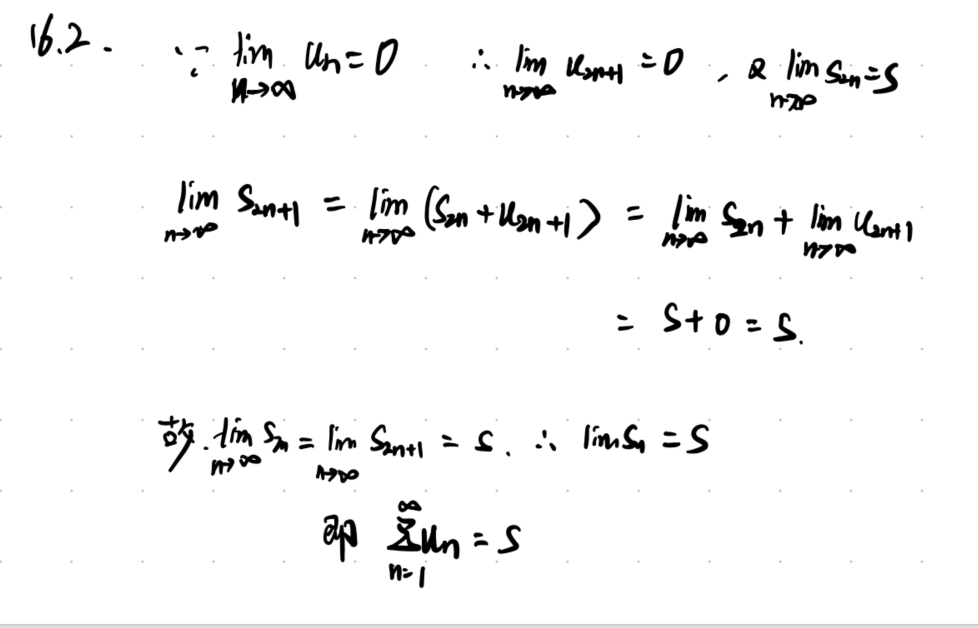 16.2. ∵ lim_{n→∞} u_n = 0 ∴ lim_{n→∞} u_{2n+1} = 0 , 又 lim_{n→∞} S_{2n} = S
lim_{n→∞} S_{2n+1} = lim_{n→∞} (S_{2n} + u_{2n+1}) = lim_{n→∞} S_{2n} + lim_{n→∞} u_{2n+1}
= S + 0 = S.
故. lim_{n→∞} S_{2n} = lim_{n→∞} S_{2n+1} = S. ∴ lim S_n = S
即 ∑_{n=1}^{∞} u_n = S